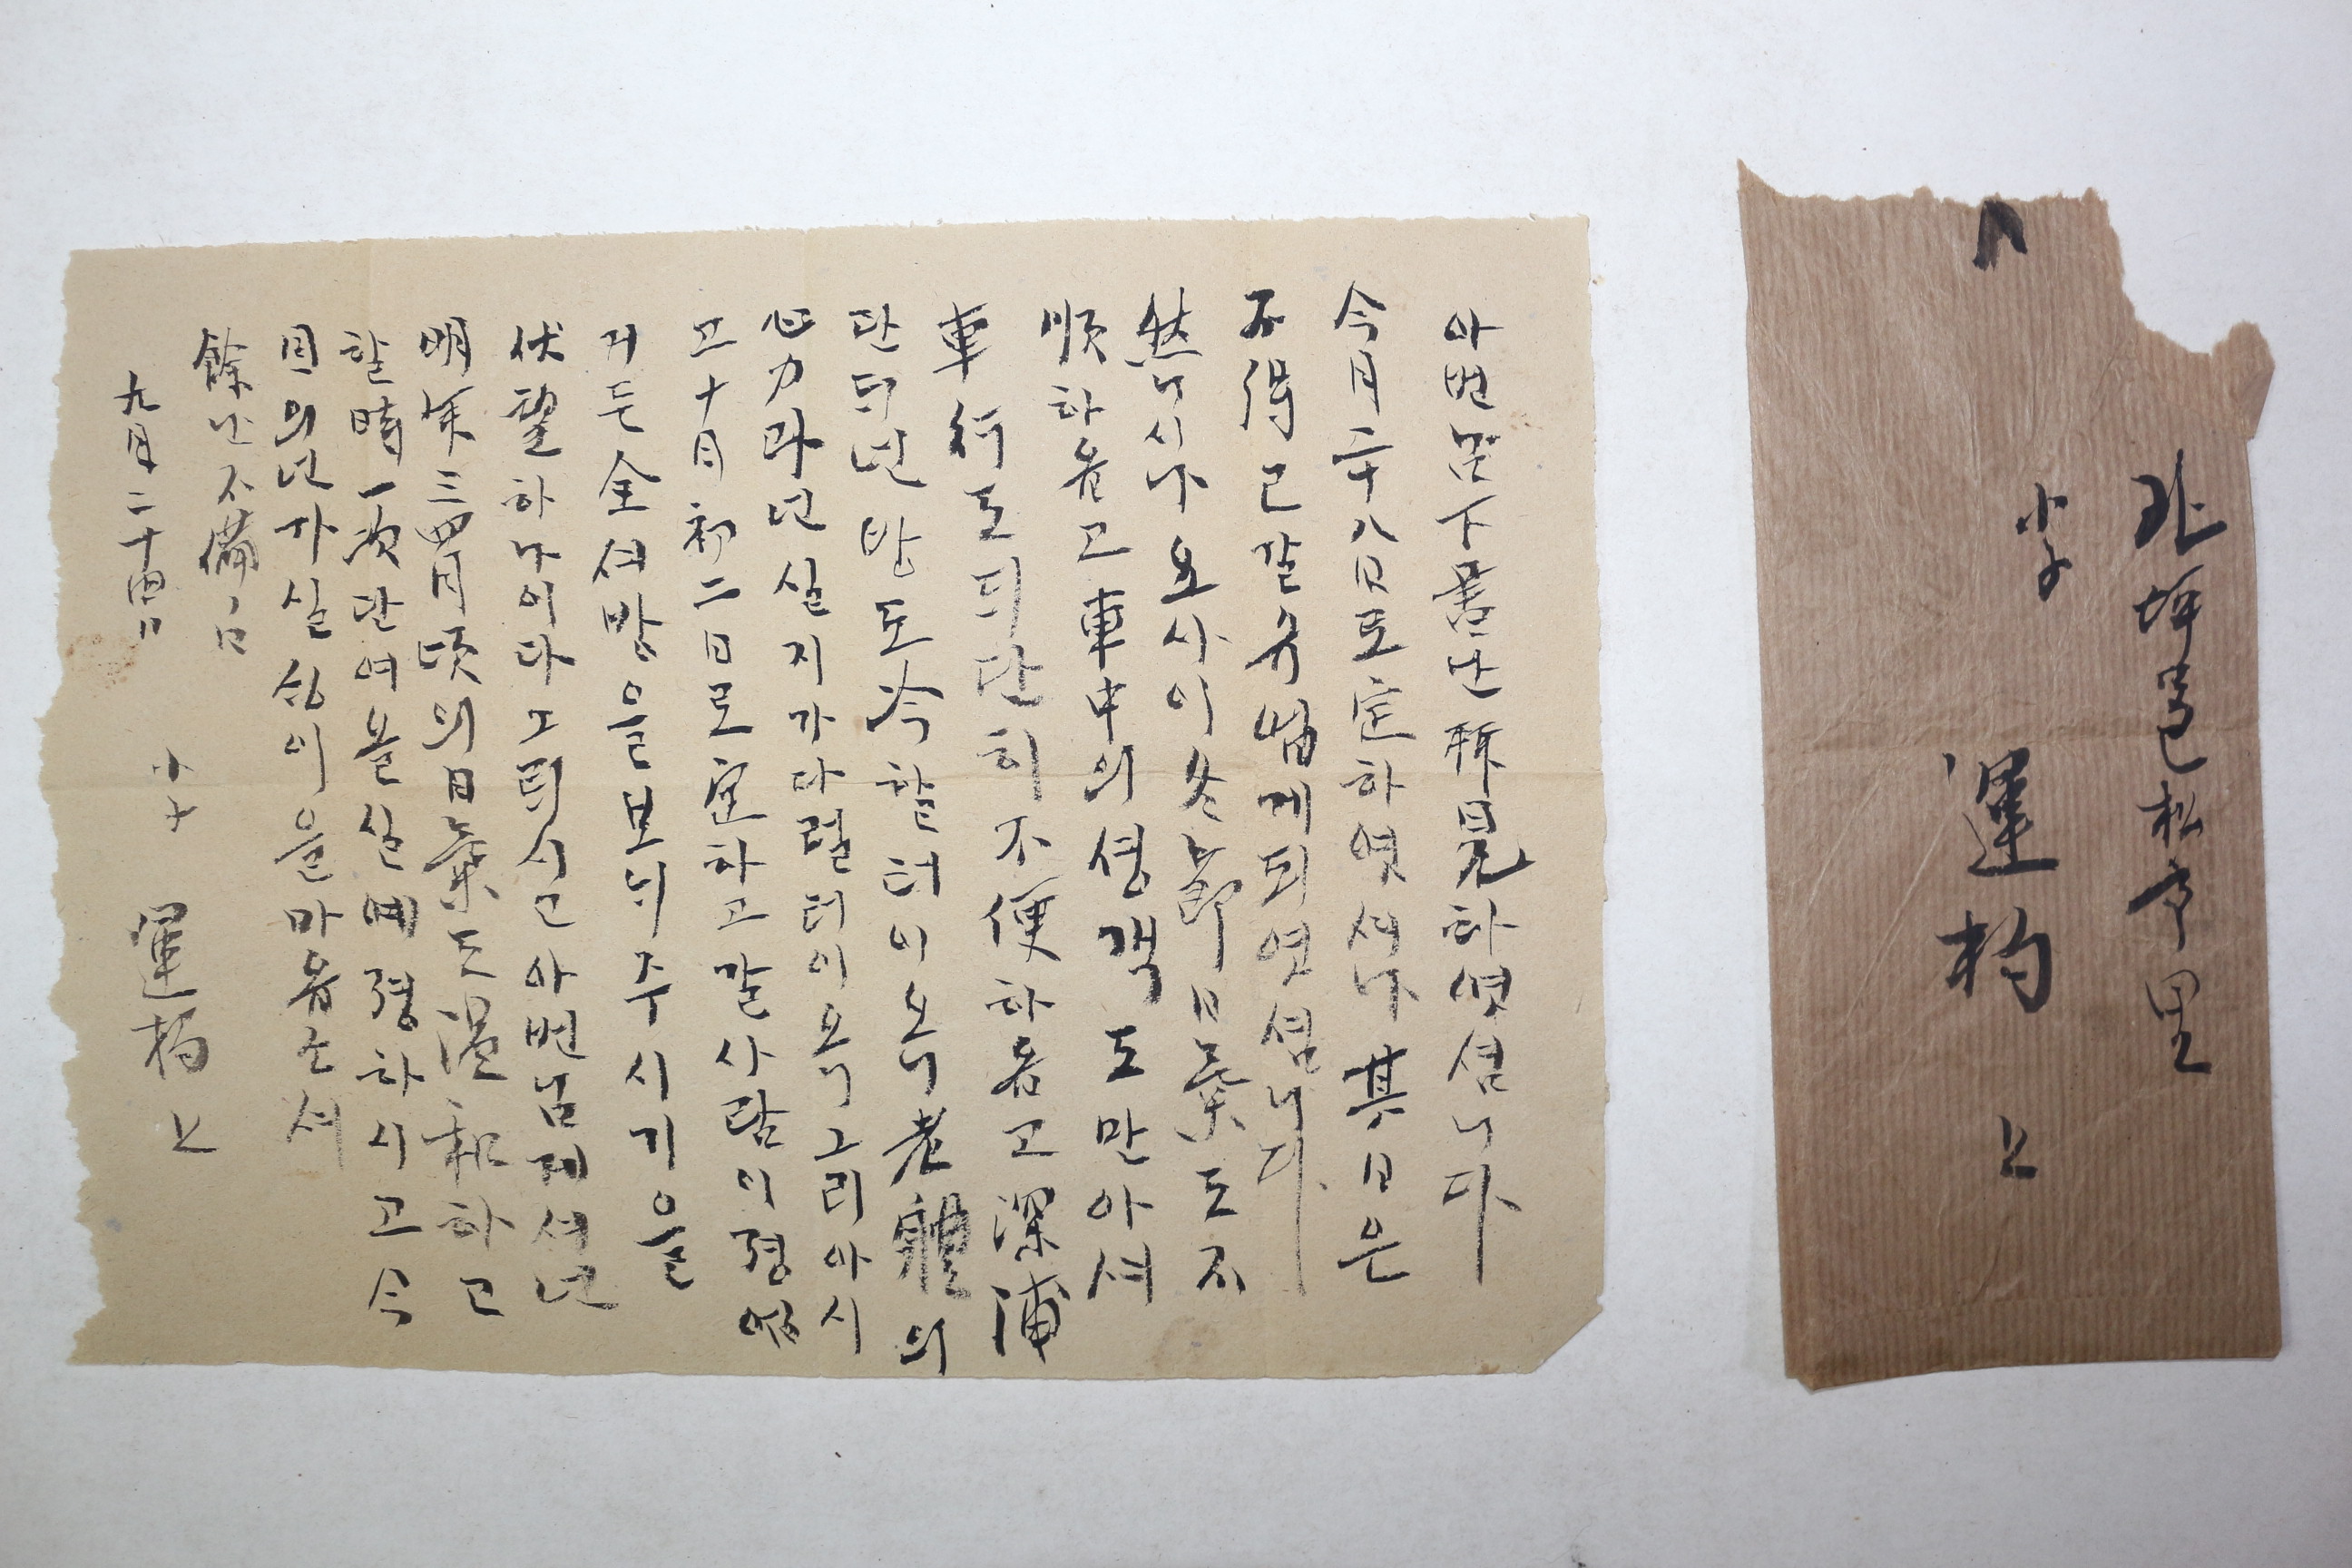 아번님下書난 拜見하엿심니다
今月二十八日로 定하엿셔나 其日은
不得已갈 슈 업게 되엿심니다
然니시나 요사이 冬節 日氣도 不
順하옵고 車中의 승객도 만아셔
車行도 되단히 不便하옵고 深浦
단되난 밤도 冷할 터이오니 老體의
心力과 난실지가 다릴 터이오니 그리 아시
고 十月初二日로 定하고 갈 사람이 졍
거든 全셔방을 보뇌 주시기을
伏望하나이다 그되시고 아번님제셔난
明年三四月頃의 日氣도 溫和하고
할 時 一次 단여올실 예졍하시고 今
日의난 가실 심이을 마옵소셔
餘난 不備
九月二十四日
小子 運杓 上
邑松亭里
小子
運杓 上